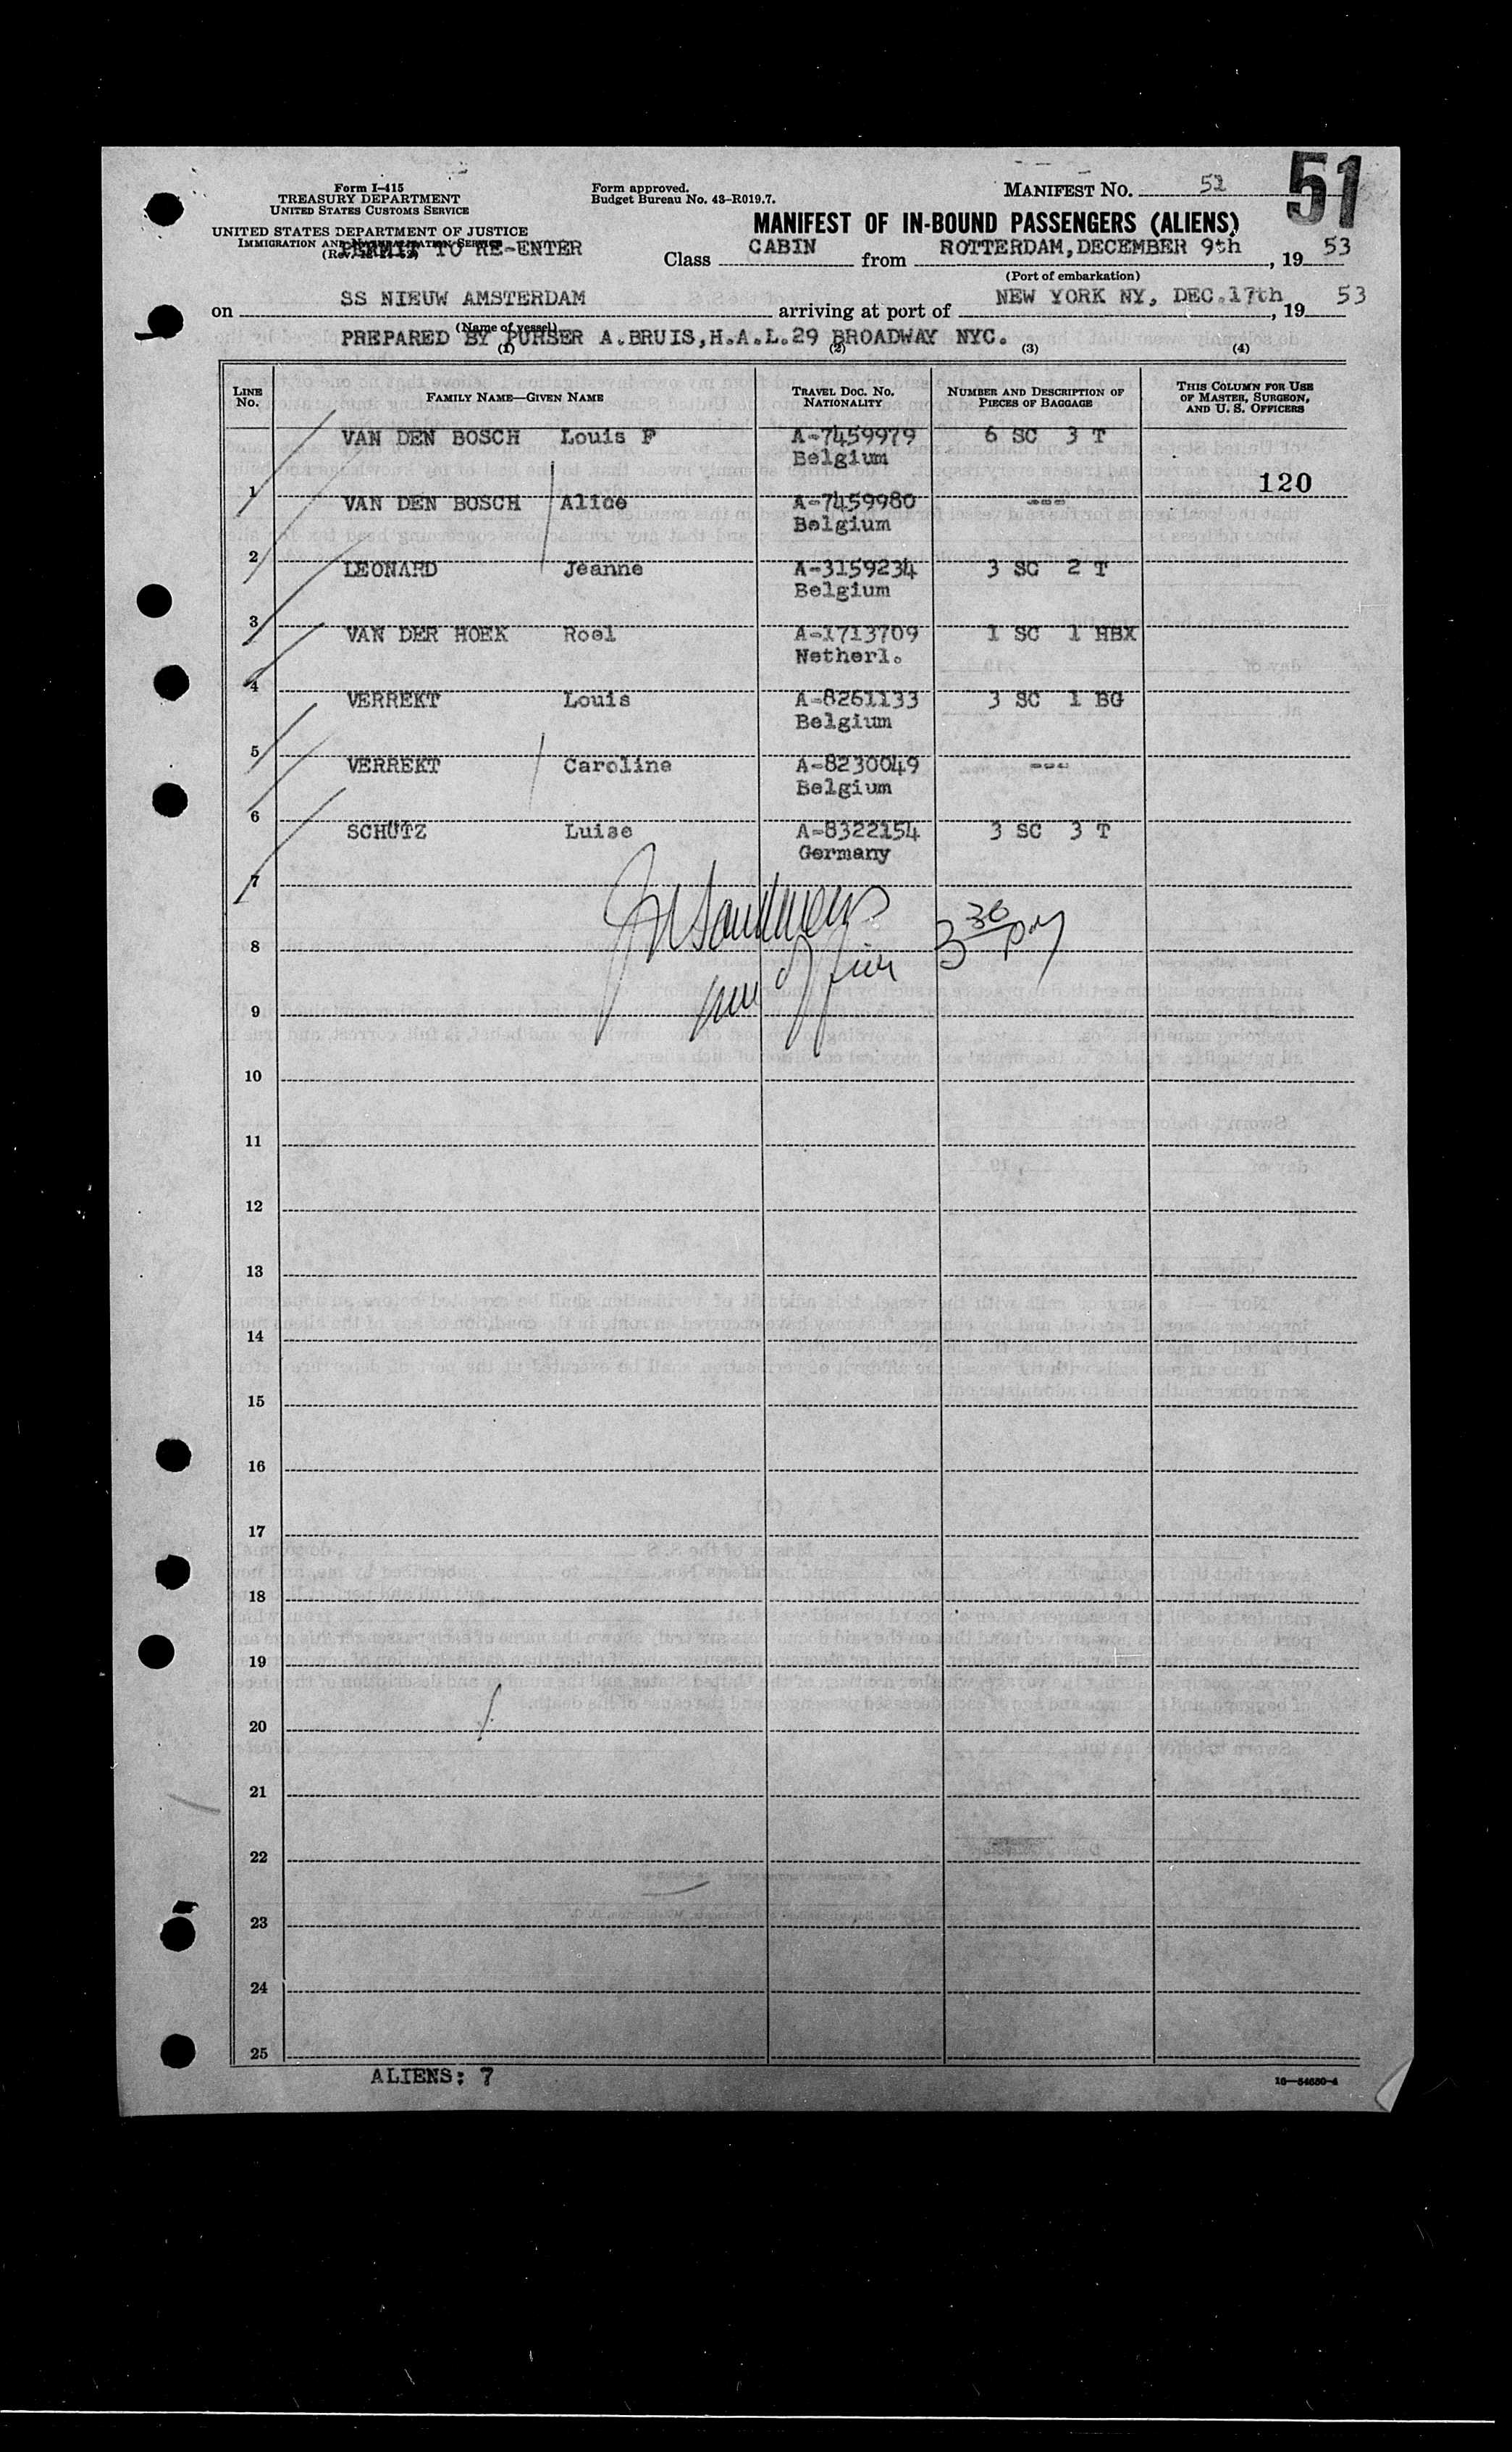 Form I-415
TREASURY DEPARTMENT
UNITED STATES CUSTOMS SERVICE
UNITED STATES DEPARTMENT OF JUSTICE
IMMIGRATION AND NATURALIZATION SERVICE
PERMIT TO RE-ENTER
Form approved.
Budget Bureau No. 43-R019.7.
MANIFEST NO. 51
51
MANIFEST OF IN-BOUND PASSENGERS (ALIENS)
Class CABIN from ROTTERDAM, DECEMBER 9th, 19 53
(Port of embarkation)
on SS NIEUW AMSTERDAM arriving at port of NEW YORK NY, DEC.17th, 19 53
(Name of vessel)
PREPARED BY PURSER A.BRUIS,H.A.L.29 BROADWAY NYC.
(1) (2) (3) (4)
LINE NO. FAMILY NAME—GIVEN NAME TRAVEL DOC. NO. NATIONALITY NUMBER AND DESCRIPTION OF PIECES OF BAGGAGE THIS COLUMN FOR USE OF MASTER, SURGEON, AND U. S. OFFICERS
VAN DEN BOSCH Louis F A-7459979 6 SC 3 T
Belgium
1 120
VAN DEN BOSCH Alice A-7459980 ---
Belgium
2
LEONARD Jeanne A-3159234 3 SC 2 T
Belgium
3
VAN DER HOEK Roel A-1713709 1 SC 1 HBX
Netherl.
4
VERREKT Louis A-8261133 3 SC 1 BG
Belgium
5
VERREKT Caroline A-8230049 ---
Belgium
6
SCHÜTZ Luise A-8322154 3 SC 3 T
Germany
7
8 3 30 PM
9
10
11
12
13
14
15
16
17
18
19
20
21
22
23
24
25
ALIENS: 7
16—54680-4